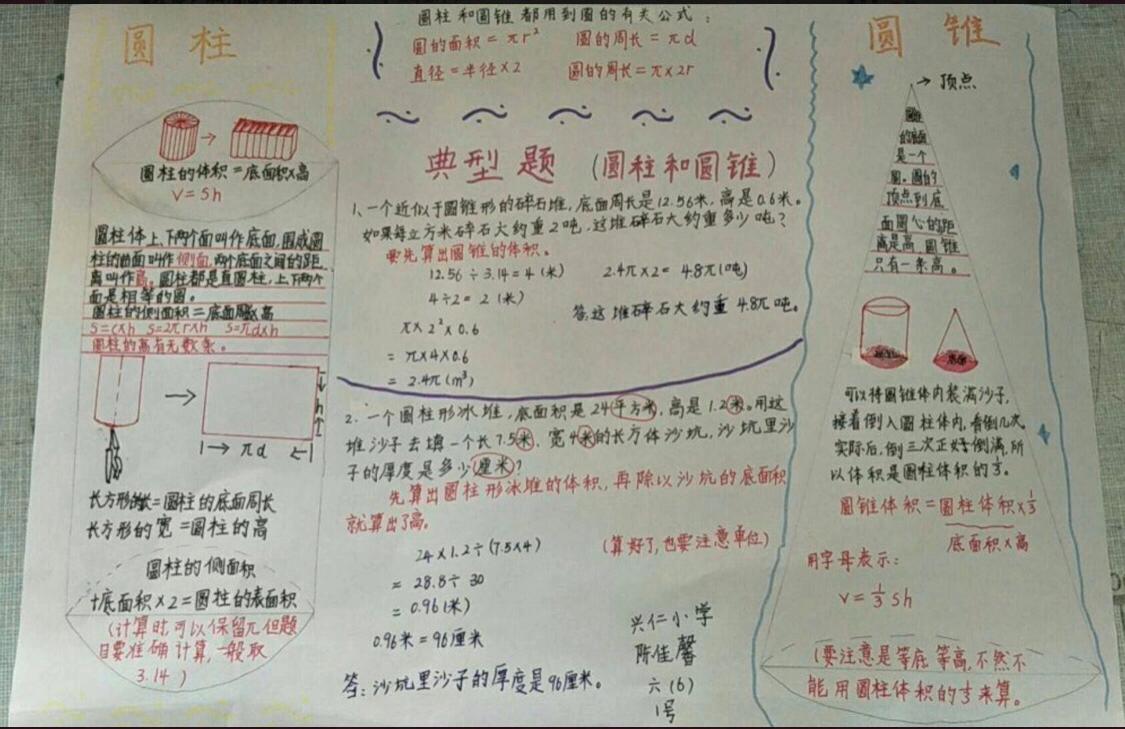 圆柱
圆柱的体积=底面积×高
V=Sh
圆柱体上、下两个面叫作底面,围成圆
柱的曲面叫作侧面,两个底面之间的距
离叫作高。圆柱都是直圆柱,上下两个
面是相等的圆。
圆柱的侧面积=底面周长×高
S=C×h S=2πr×h S=πd×h
圆柱的高有无数条。
h
πd
长方形的长=圆柱的底面周长
长方形的宽=圆柱的高
圆柱的侧面积
+底面积×2=圆柱的表面积
(计算时,可以保留π但题
目要准确计算,一般取
3.14)
圆柱和圆锥都用到圆的有关公式:
圆的面积=πr² 圆的周长=πd
直径=半径×2 圆的周长=π×2r
典型题(圆柱和圆锥)
1、一个近似于圆锥形的碎石堆,底面周长是12.56米,高是0.6米。
如果每立方米碎石大约重2吨,这堆碎石大约重多少吨?
要先算出圆锥的体积。
12.56÷3.14=4(米) 2.4π×2=4.8π(吨)
4÷2=2(米)
答:这堆碎石大约重4.8π吨。
π×2²×0.6
=π×4×0.6
=2.4π(m³)
2、一个圆柱形冰堆,底面积是24平方米,高是1.2米。用这
堆沙子去填一个长7.5米,宽4米的长方体沙坑,沙坑里沙
子的厚度是多少厘米?
先算出圆柱形冰堆的体积,再除以沙坑的底面积
就算出了高。
24×1.2÷(7.5×4) (算好了,也要注意单位)
=28.8÷30
=0.96(米)
0.96米=96厘米
答:沙坑里沙子的厚度是96厘米。
兴仁小学
陈佳馨
六(6)
1号
圆锥
顶点
圆锥
的底面
是一个
圆。圆的
顶点到底
面圆心的距
离是高 圆锥
只有一条高。
可以将圆锥体内装满沙子,
接着倒入圆柱体内,看倒几次
实际后,倒三次正好倒满,所
以体积是圆柱体积的⅓。
圆锥体积=圆柱体积×⅓
底面积×高
用字母表示:
V=⅓Sh
(要注意是等底等高,不然不
能用圆柱体积的⅓来算。